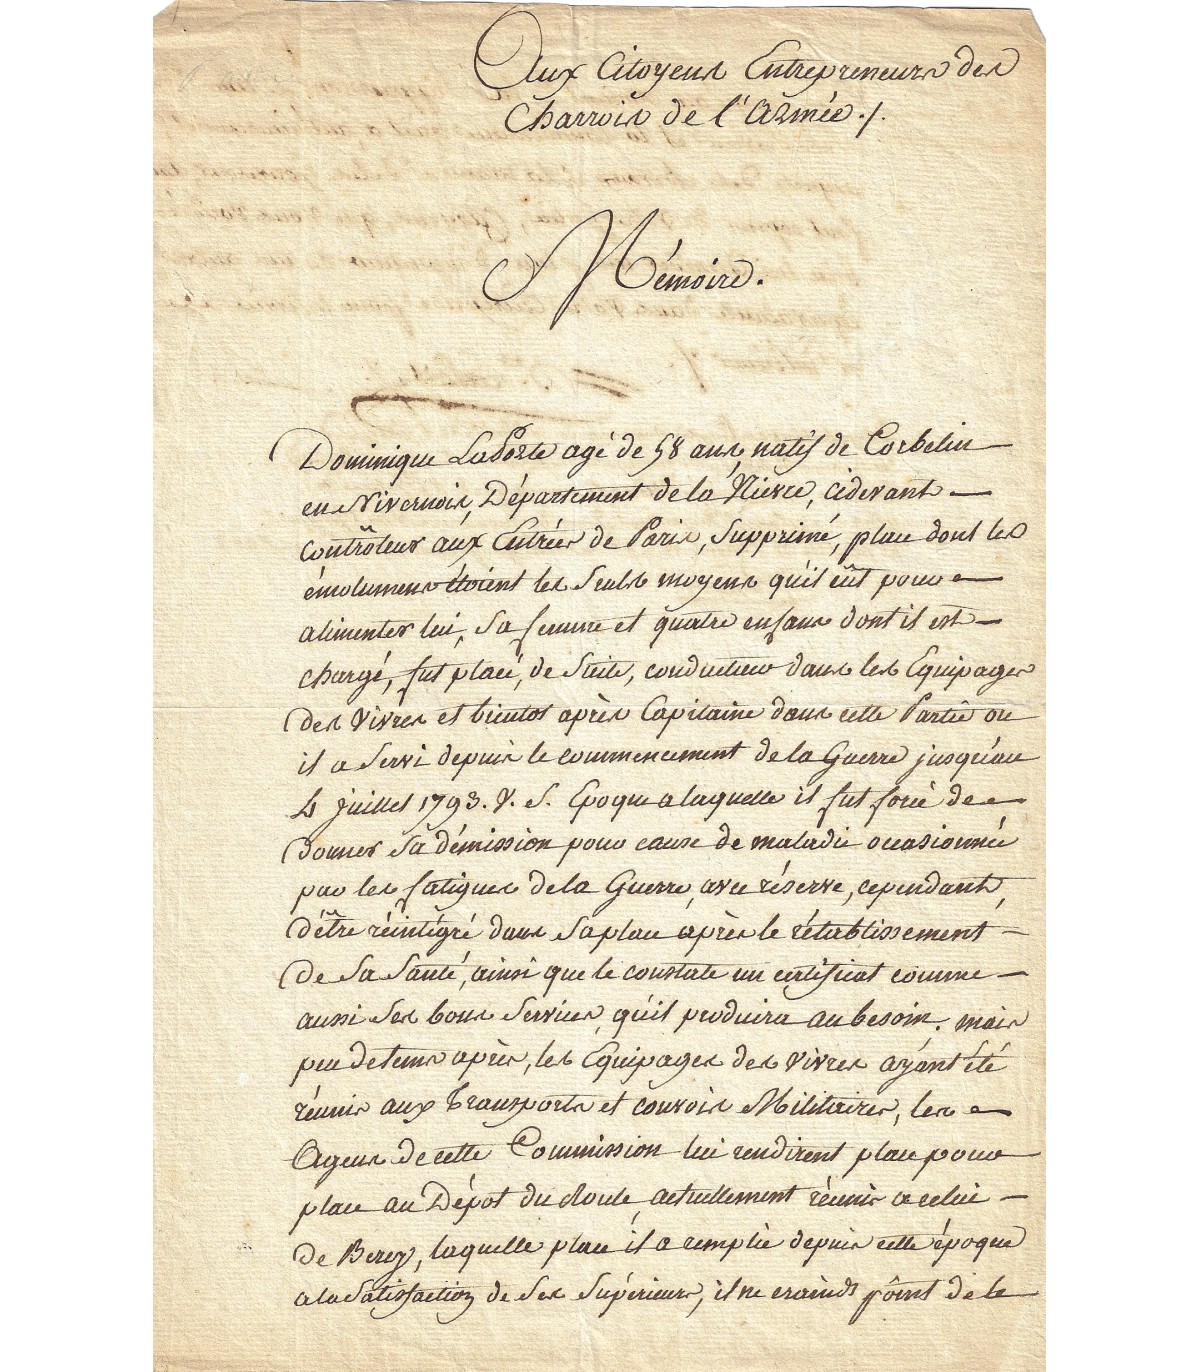 Aux Citoyens Entrepreneurs des
Charrois de l'Armée./.
Mémoire.
Dominique LaPorte agé de 58 ans, natif de Corbelin
en Nivernois, Département de la Nievre, cidevant
Contrôleur aux Entrées de Paris, Supprimé, place dont les
émolumens étoient les Seuls moyens qu'il eût pour
alimenter lui, Sa femme et quatre enfans dont il est
chargé, fut placé, de Suite, conducteur dans les Equipages
des Vivres et bientot après Capitaine dans cette Partie ou
il a Servi depuis le commencement de la Guerre jusqu'au
4 juillet 1793. V. S. Epoque a laquelle il fut forcé de
donner Sa démission pour cause de maladie occasionnée
par les fatigues de la Guerre, avec réserve, cependant,
d'être réintégré dans Sa place après le rétablissement
de Sa Santé, ainsi que le constate un certificat comme
aussi Ses bons Services, qu'il produira au besoin. mais
peu de tems après, les Equipages des Vivres ayant été
réunis aux Transports et convois Militaires, les
Agens de cette Commission lui rendirent place pour
place au Dépot du Roule, actuellement réunis a celui
de Bercy, laquelle place il a remplie depuis cette époque
a la Satisfaction de Ses Supérieurs, il ne craind point de le